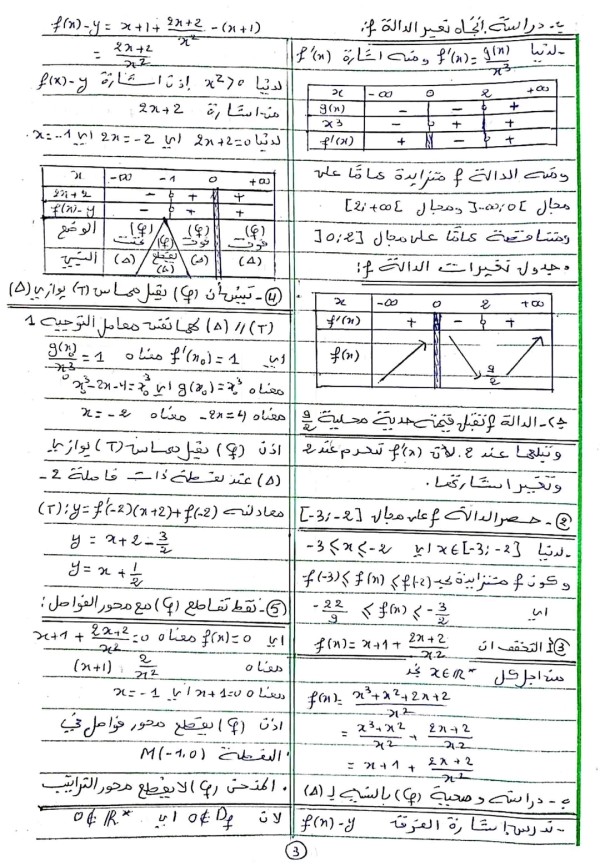 ب- دراسة اتجاه تغير الدالة f:
- لدينا f'(x) = g(x)/x³ ومنه اشارة f'(x)
x | -∞ 0 2 +∞
g(x) | - - 0 +
x³ | - 0 + +
f'(x) | + - 0 +
ومنه الدالة f متزايدة تماما على
مجال ]-∞;0[ ومجال ]2;+∞[
ومتناقصة تماما على مجال ]0;2]
• جدول تغيرات الدالة f:
x | -∞ 0 2 +∞
f'(x) | + - 0 +
f(x) | 9/2
ج)- الدالة f تقبل قيمة حدية محلية 9/2
وتبلغها عند 2 لأن f'(x) تنعدم عند 2
وتغير اشارتها.
② - حصر الدالة f على مجال [-3;-2]
- لدينا x∈[-3;-2] اي -3≤x≤-2
وكون f متزايدة نجد f(-3)≤f(x)≤f(-2)
اي -22/9 ≤ f(x) ≤ -3/2
③ أ التحقق ان f(x) = x+1 + (2x+2)/x²
من اجل كل x∈ℝ* نجد
f(x) = (x³+x²+2x+2)/x²
= (x³+x²)/x² + (2x+2)/x²
= x+1 + (2x+2)/x²
ج- دراسة وضعية (φ) بالنسبة لـ (Δ)
- ندرس اشارة الفرق f(x)-y
f(x)-y = x+1+(2x+2)/x² -(x+1)
= (2x+2)/x²
لدينا x²>0 إذن اشارة f(x)-y
من اشارة 2x+2
لدينا 2x+2=0 اي 2x=-2 اي x=-1
x | -∞ -1 0 +∞
2x+2 | - 0 + +
f(x)-y | - 0 + +
الوضع | (φ) تحت | (φ) يقطع (Δ) | (φ) فوق | (φ) فوق
النسبي | (Δ) (Δ) (Δ)
④ - تبيين أن (φ) يقبل مماس (T) يوازي (Δ)
(T) // (Δ) لهما نفس معامل التوجيه 1
اي f'(x₀)=1 معناه g(x)/x³ = 1
معناه g(x₀)=x₀³ اي x₀³-2x-4=x₀³
معناه -2x=4 معناه x=-2
اذن (φ) يقبل مماس (T) يوازي
(Δ) عند نقطة ذات فاصلة -2
معادلته (T): y=f'(-2)(x+2)+f(-2)
y = x+2-3/2
y = x+1/2
⑤ - نقط تقاطع (φ) مع محور الفواصل:
اي f(x)=0 معناه x+1+(2x+2)/x²=0
معناه (x+1) 2/x²
معناه x+1=0 اي x=-1
اذن (φ) يقطع محور فواصل في
النقطة M(-1,0).
• المنحنى (φ) لا يقطع محور التراتيب
لان 0∉Df اي 0∉ℝ*
3